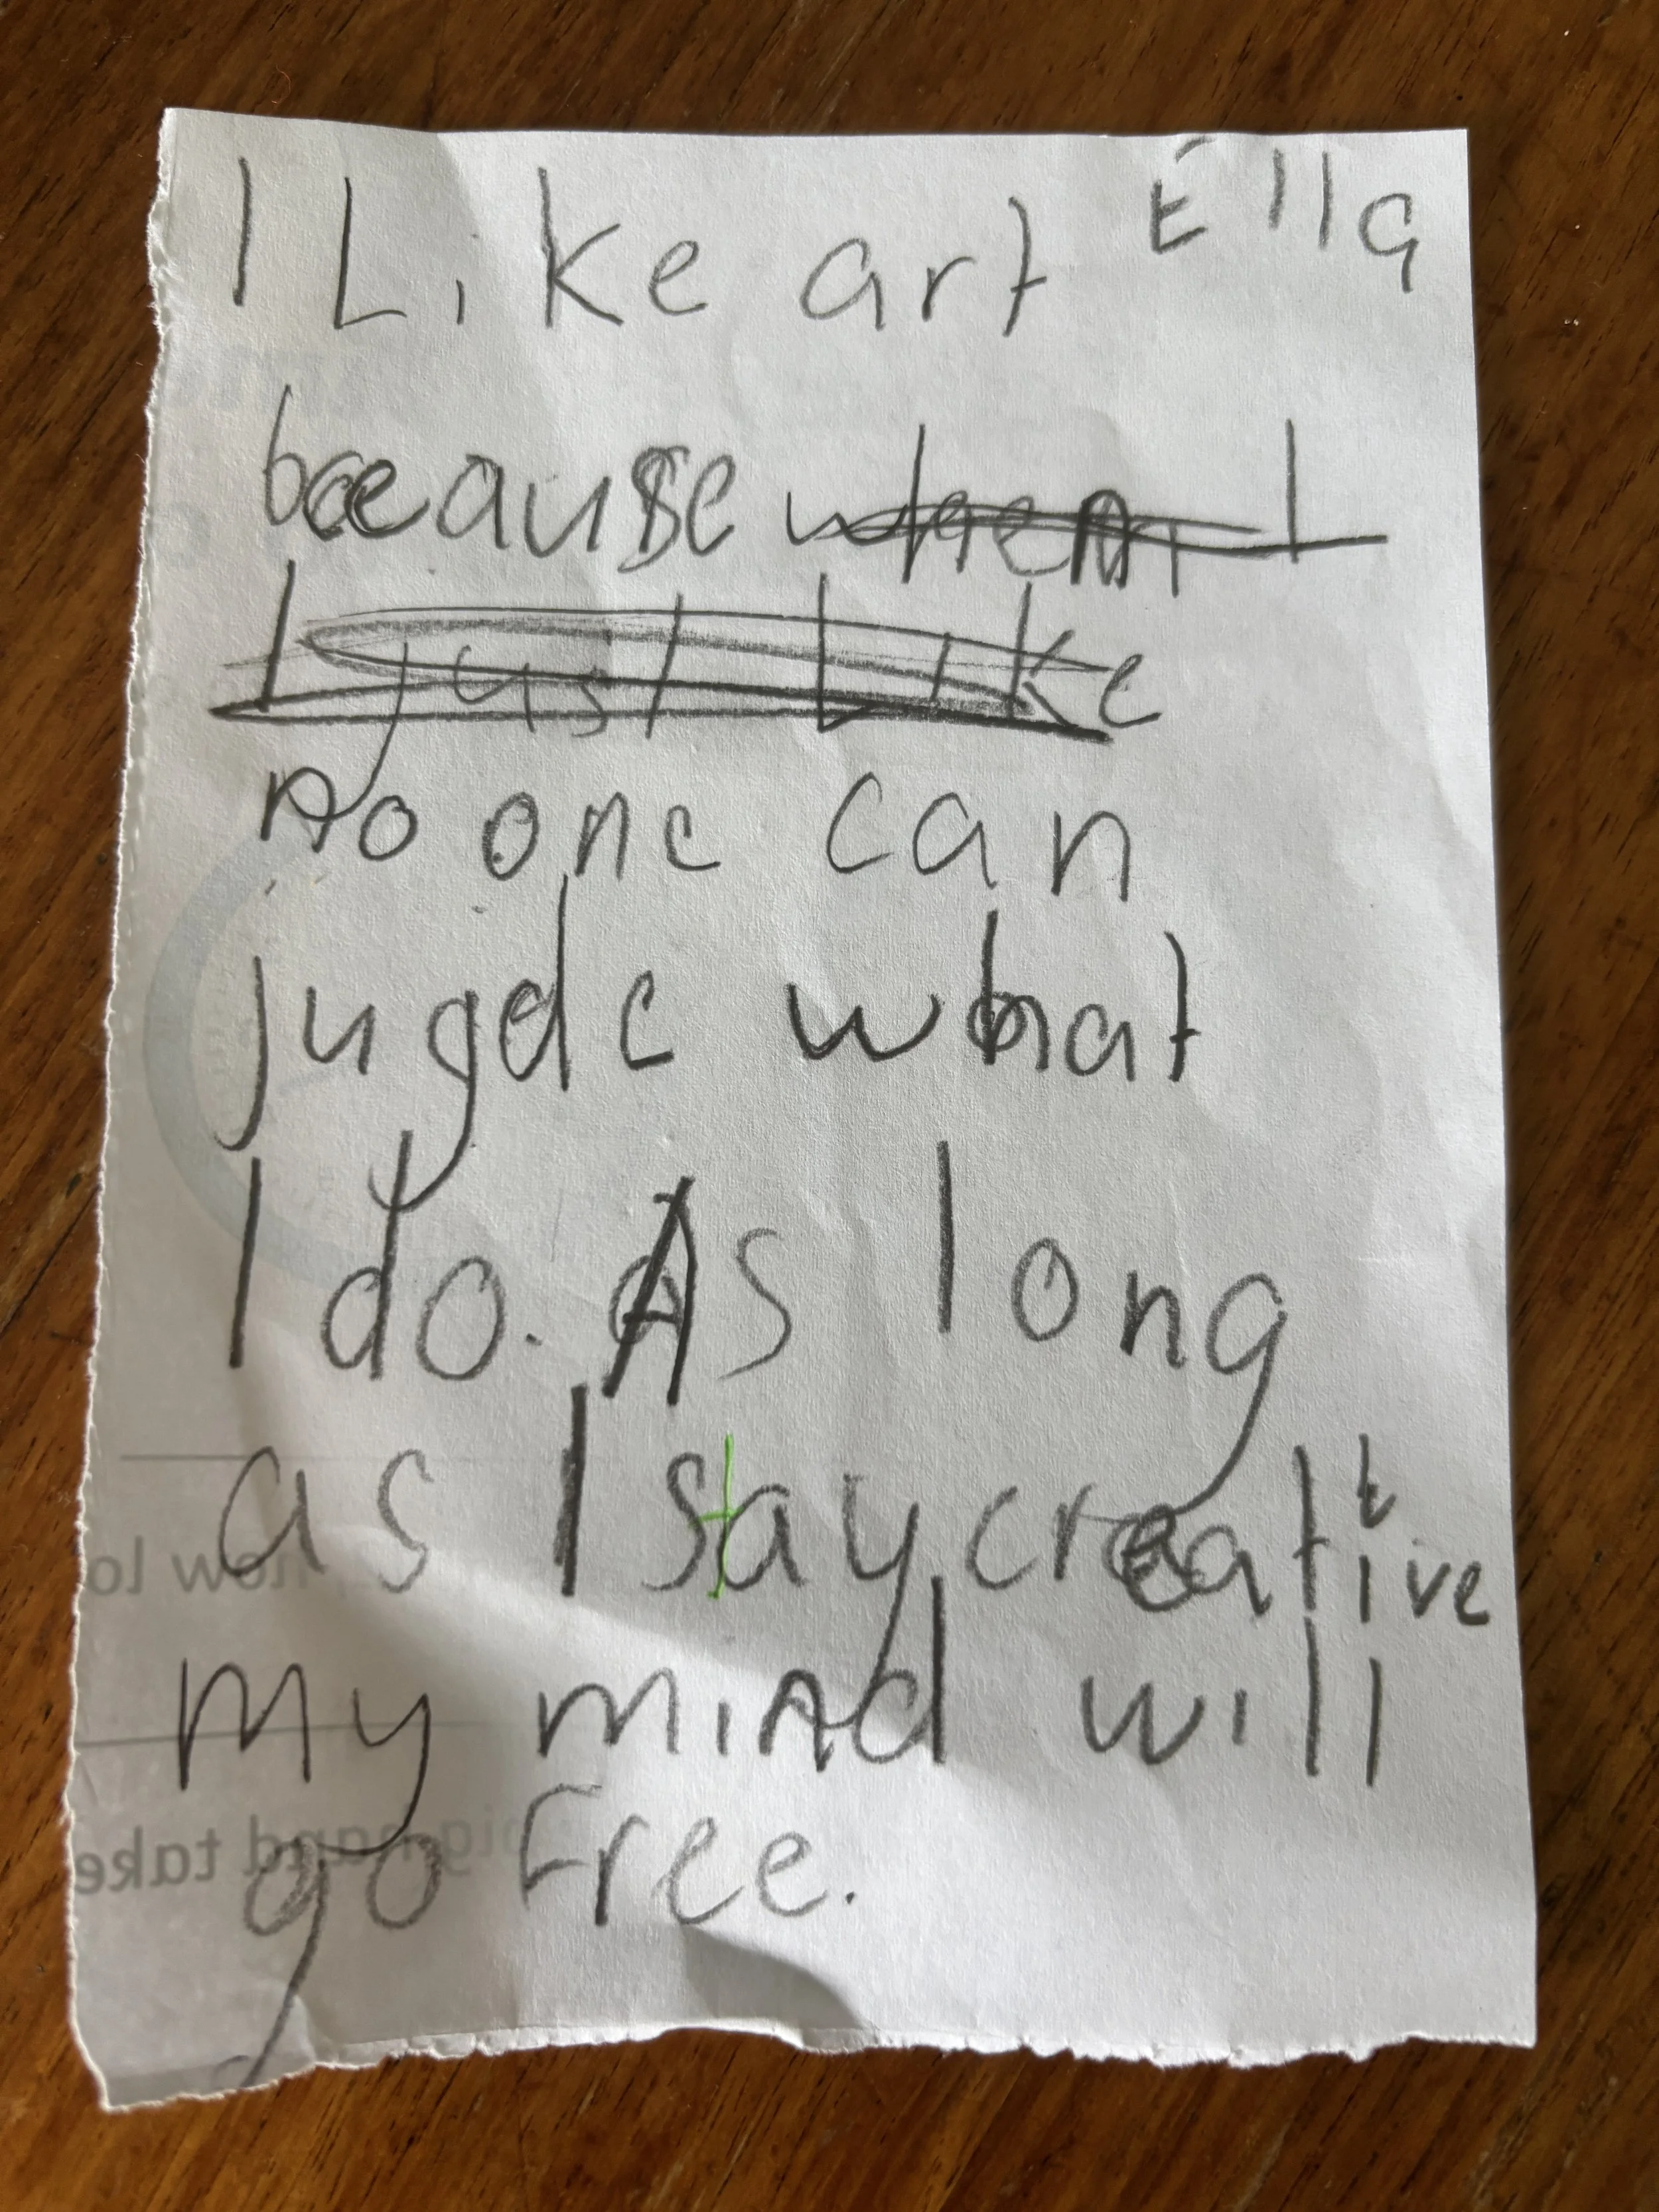 I Like art Ella
because when I
I just Like
no one can
jugde what
I do. As long
as I stay creative
my mind will
go Free.